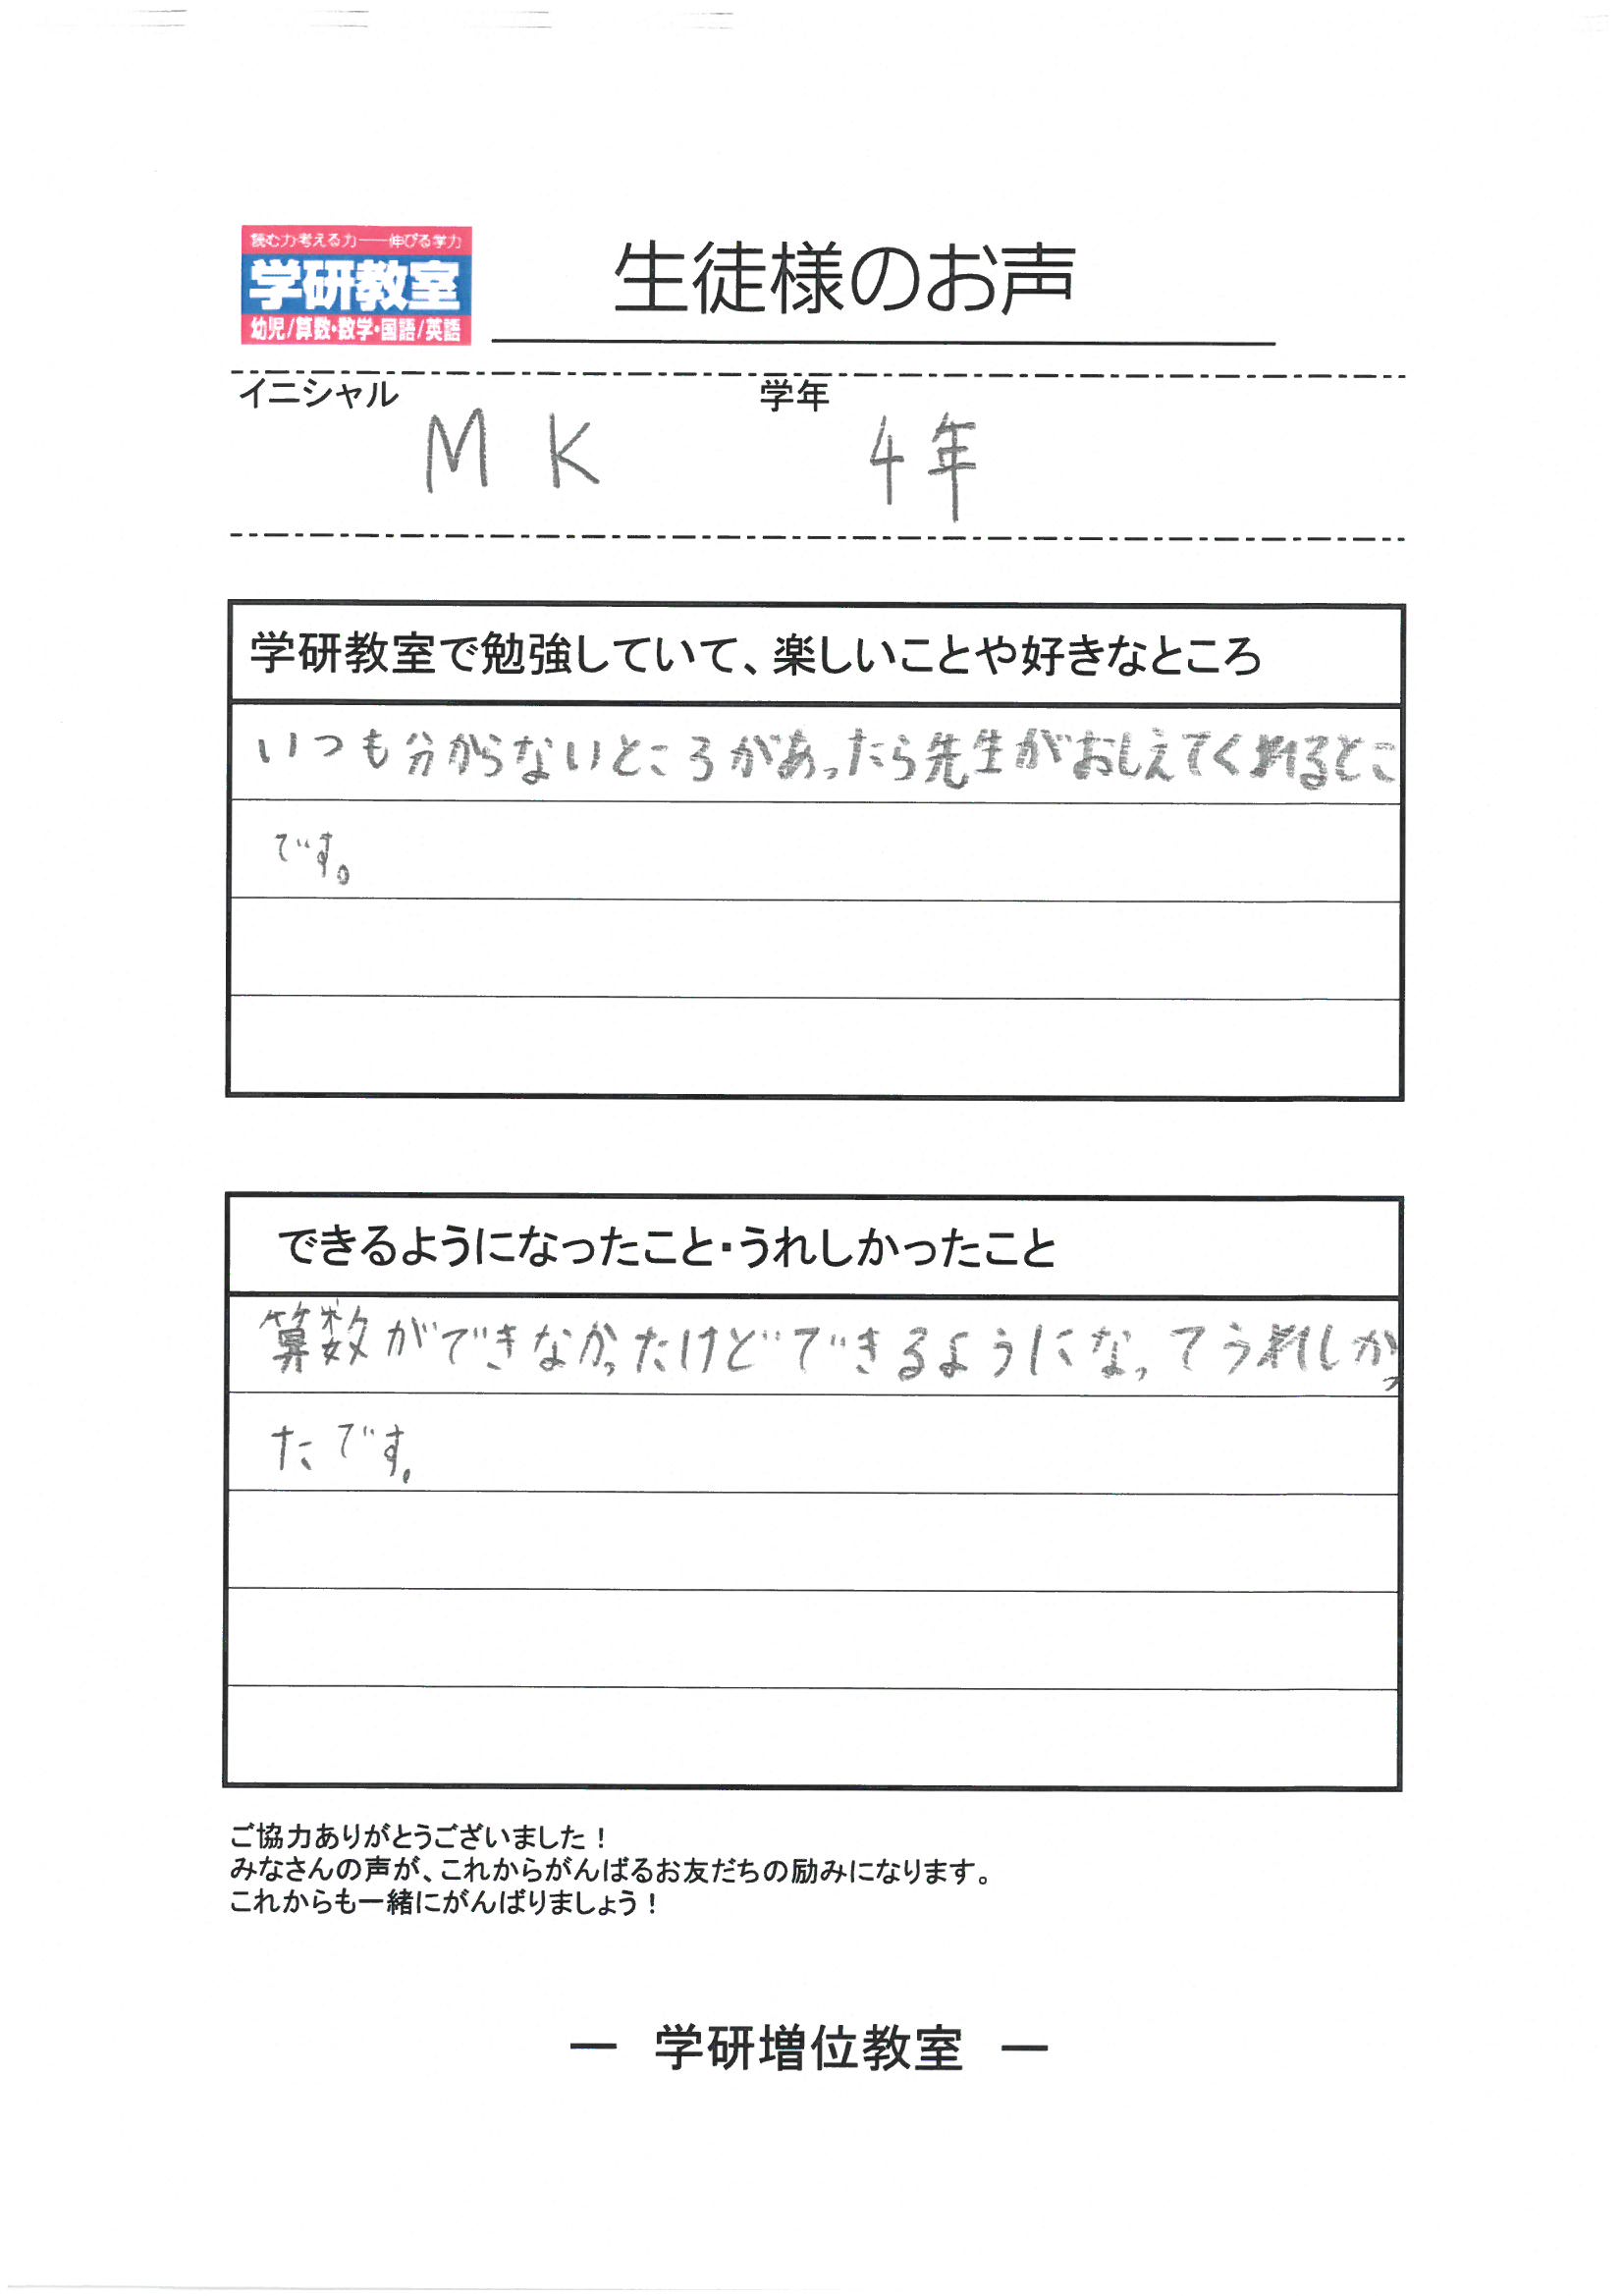 読む力考える力──伸びる学力
学研教室
幼児/算数・数学・国語/英語
生徒様のお声
イニシャル 学年
M K 4年
学研教室で勉強していて、楽しいことや好きなところ
いつも分からないところがあったら先生がおしえてくれるとこ
です。
できるようになったこと・うれしかったこと
算数ができなかったけどできるようになってうれしかっ
たです。
ご協力ありがとうございました！
みなさんの声が、これからがんばるお友だちの励みになります。
これからも一緒にがんばりましょう！
― 学研増位教室 ―